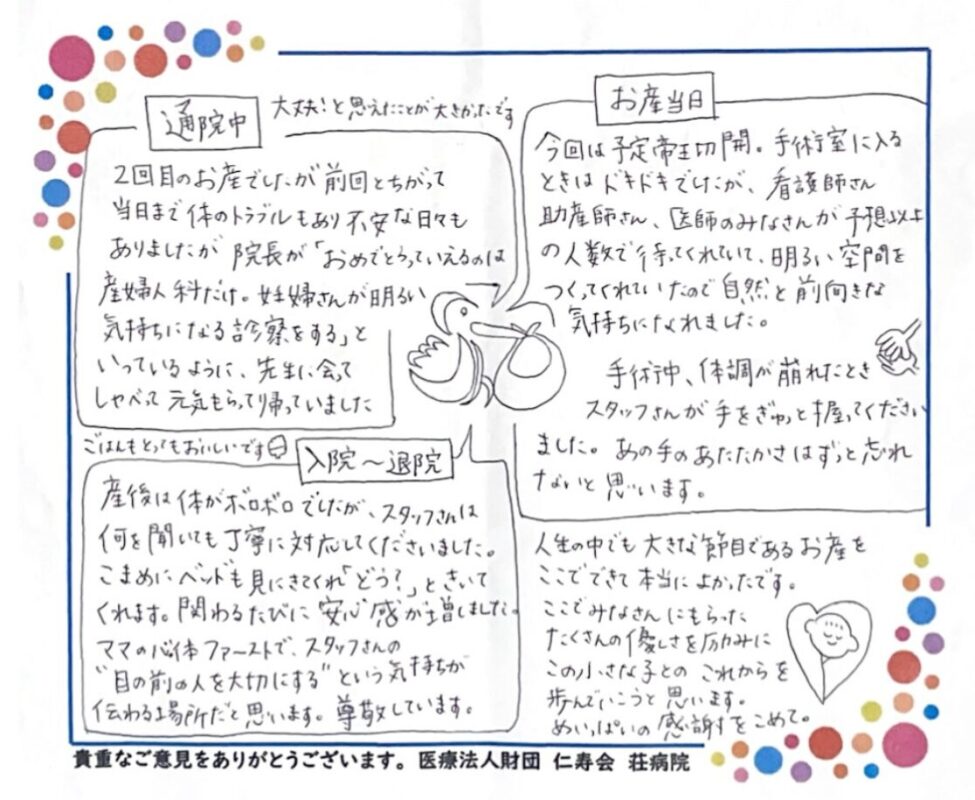 通院中
大丈夫!と思えたことが大きかったです
2回目のお産でしたが前回とちがって
当日まで体のトラブルもあり不安な日々も
ありましたが院長が「おめでとうっていえるのは
産婦人科だけ。妊婦さんが明るい
気持ちになる診察をする」と
いっているように、先生に会って
しゃべって元気もらって帰っていました
お産当日
今回は予定帝王切開。手術室に入る
ときはドキドキでしたが、看護師さん
助産師さん、医師のみなさんが予想以上
の人数で待ってくれていて、明るい空間を
つくってくれていたので自然と前向きな
気持ちになれました。
手術中、体調が崩れたとき
スタッフさんが手をぎゅっと握ってください
ました。あの手のあたたかさはずっと忘れ
ないと思います。
ごはんもとってもおいしいです
入院〜退院
産後は体がボロボロでしたが、スタッフさんは
何を聞いても丁寧に対応してくださいました。
こまめにベッドも見にきてくれ「どう?」ときいて
くれます。関わるたびに安心感が増しました。
ママの心体ファーストで、スタッフさんの
"目の前の人を大切にする"という気持ちが
伝わる場所だと思います。尊敬しています。
人生の中でも大きな節目であるお産を
ここでできて本当によかったです。
ここでみなさんにもらった
たくさんの優しさを励みに
この小さな子とのこれからを
歩んでいこうと思います。
めいっぱいの感謝をこめて。
貴重なご意見をありがとうございます。医療法人財団 仁寿会 荘病院